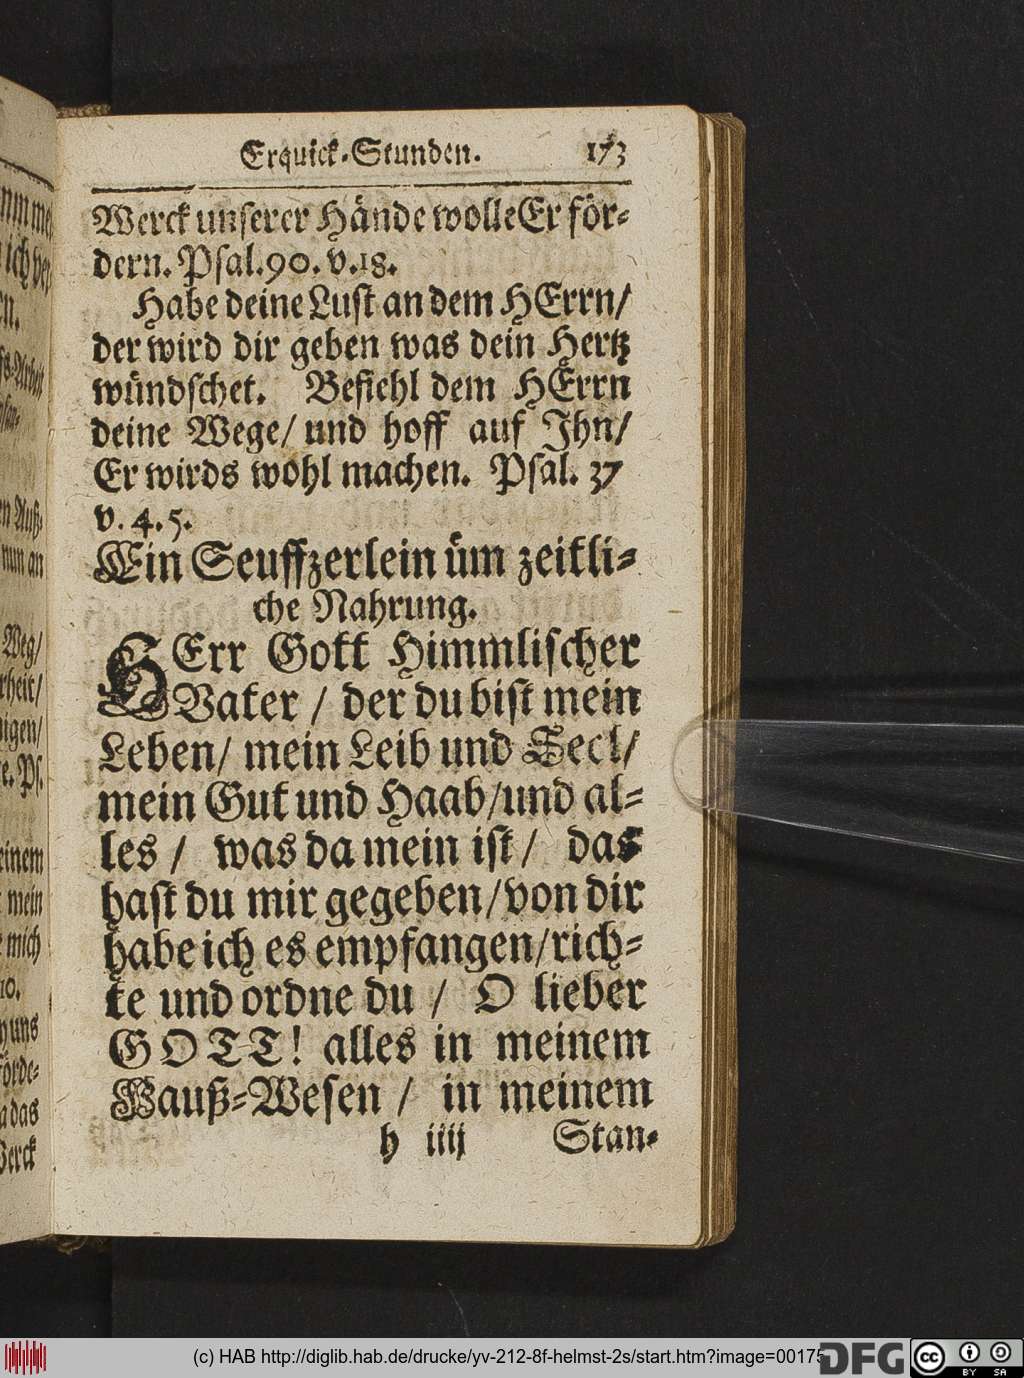 Erquick-Stunden. 173
Werck unserer Hände wolle Er för-
dern. Psal. 90. v. 18.
Habe deine Lust an dem HErrn/
der wird dir geben was dein Hertz
wündschet. Befiehl dem HErrn
deine Wege/ und hoff auf Ihn/
Er wirds wohl machen. Psal. 37
v. 4. 5.
Ein Seuffzerlein üm zeitli-
che Nahrung.
HErr Gott Himmlischer
Vater / der du bist mein
Leben/ mein Leib und Seel/
mein Gut und Haab/und al-
les / was da mein ist / das
hast du mir gegeben/von dir
habe ich es empfangen/rich-
te und ordne du / O lieber
GOTT! alles in meinem
Hauß-Wesen / in meinem
h iiij Stan-
(c) HAB http://diglib.hab.de/drucke/yv-212-8f-helmst-2s/start.htm?image=00175
DFG
cc BY SA